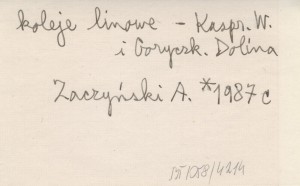 koleje linowe – Kaspr. W.
i Gorycsk. Dolina
Zaczyński A. *1987 c